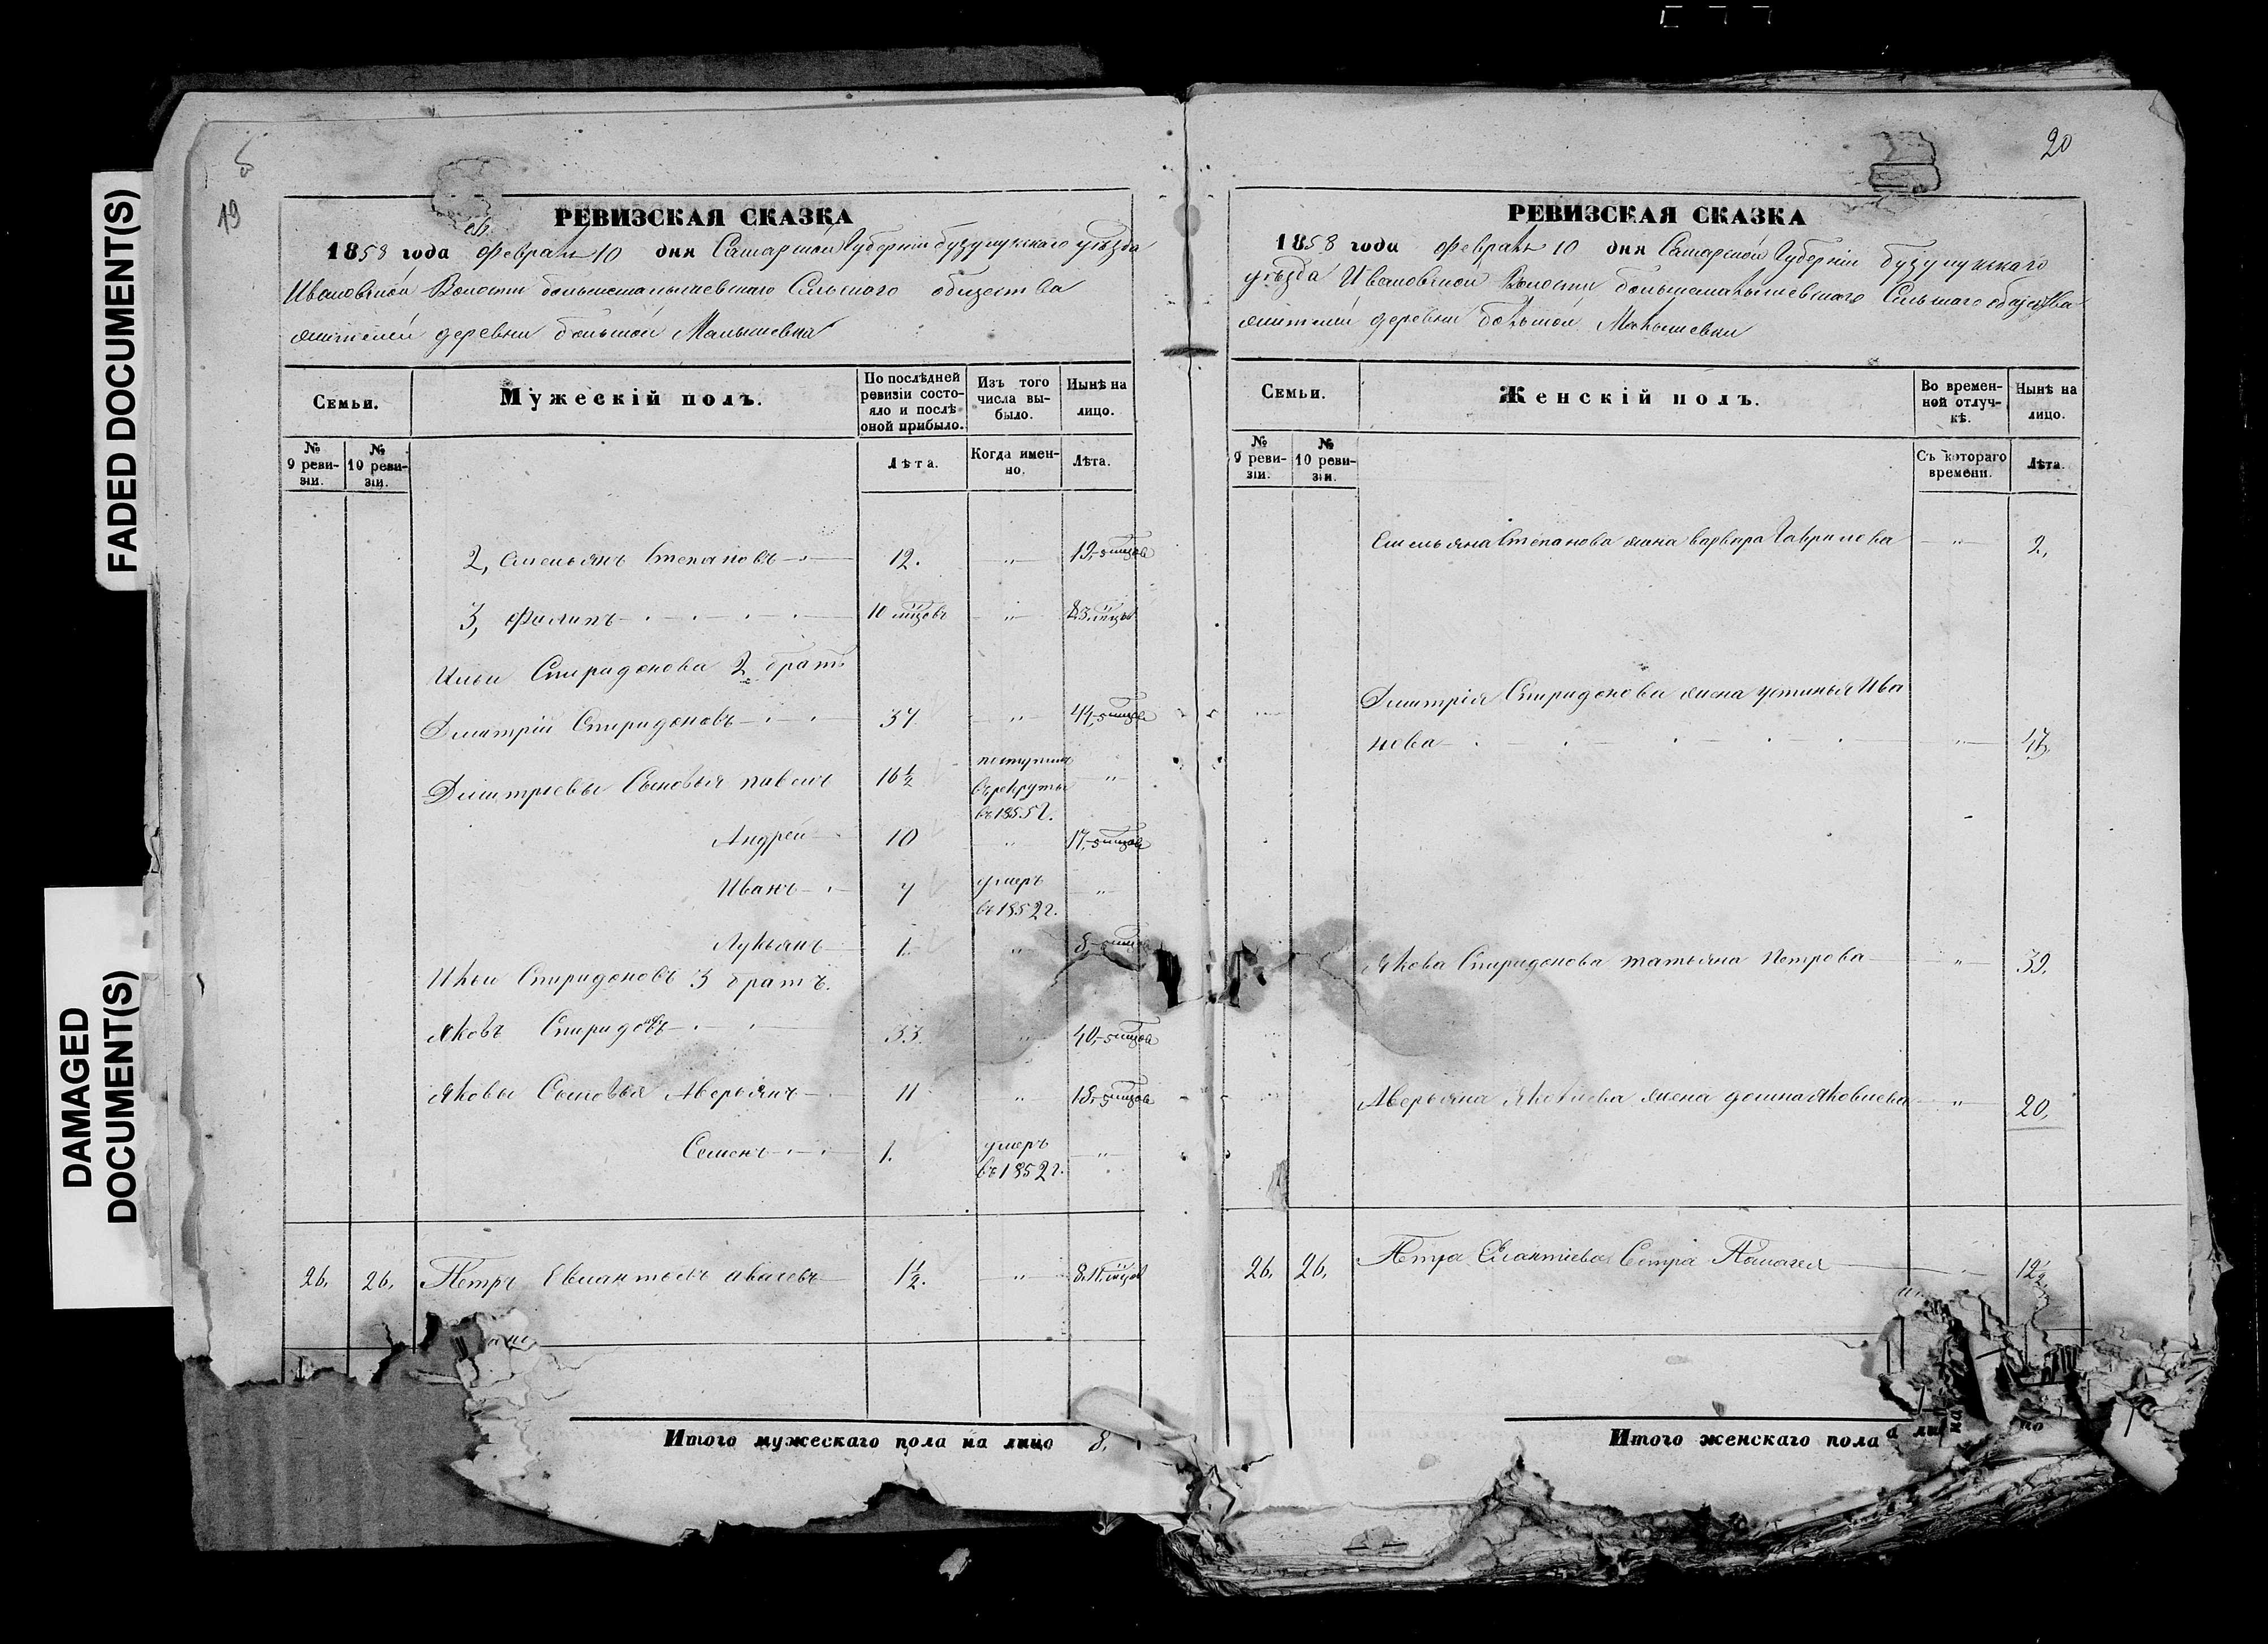 FADED DOCUMENT(S)
DAMAGED
DOCUMENT(S)
19
РЕВИЗСКАЯ СКАЗКА
1858 года февраля 10 дня Самарской Губернiи бузулукскаго уѣзда
Ивановской Волости большемалышевскаго Сельскаго общества
жителей деревни большой Малышевки
Семьи.
Мужескiй полъ.
По послѣдней ревизiи состояло и послѣ оной прибыло.
Изъ того числа выбыло.
Нынѣ на лицо.
№ 9 ревизiи.
№ 10 ревизiи.
Лѣта.
Когда именно.
Лѣта.
2, Емельянъ Степановъ 12. " 19,-5 мцов
3, Филипъ 10 мцовъ " 8.3. мцы
Ильи Спиридонова 2 братъ
Дмитрiй Спиридоновъ 37 " 44,-5 мцов
Дмитрiевы Сыновья павелъ 16½ поступилъ в рекруты въ 1855 г. "
Андрей 10 " 17,-5 мцов
Иванъ 7 умеръ въ 1852 г. "
Лукьянъ 1. " 8,-5 мцов
Ильи Спиридоновъ 3 братъ.
Яковъ Спиридоновъ 33. " 40,-5 мцов
Яковы Сыновья Аверьянъ 11 " 18,-5 мцов
Семенъ 1. умеръ въ 1852 г. "
26. 26. Петръ 1½. " 8.11. мцов
Итого мужескаго пола на лицо 8.
20
РЕВИЗСКАЯ СКАЗКА
1858 года февраля 10 дня Самарской Губернiи бузулукскаго
уѣзда Ивановской Волости большемалышевскаго Сельскаго общества
жителей деревни большой Малышевки
Семьи.
Женскiй полъ.
Во временной отлучкѣ.
Нынѣ на лицо.
№ 9 ревизiи.
№ 10 ревизiи.
Съ котораго времени.
Лѣта.
Емельяна Степанова жена варвара Гаврилова " 2,
Дмитрiя Спиридонова жена устинья Ива
нова " 47,
Якова Спиридонова татьяна Петрова " 39,
Аверьяна Яковлева жена домна Яковлева " 20,
26. 26. Петра Сестра 12½
Итого женскаго пола